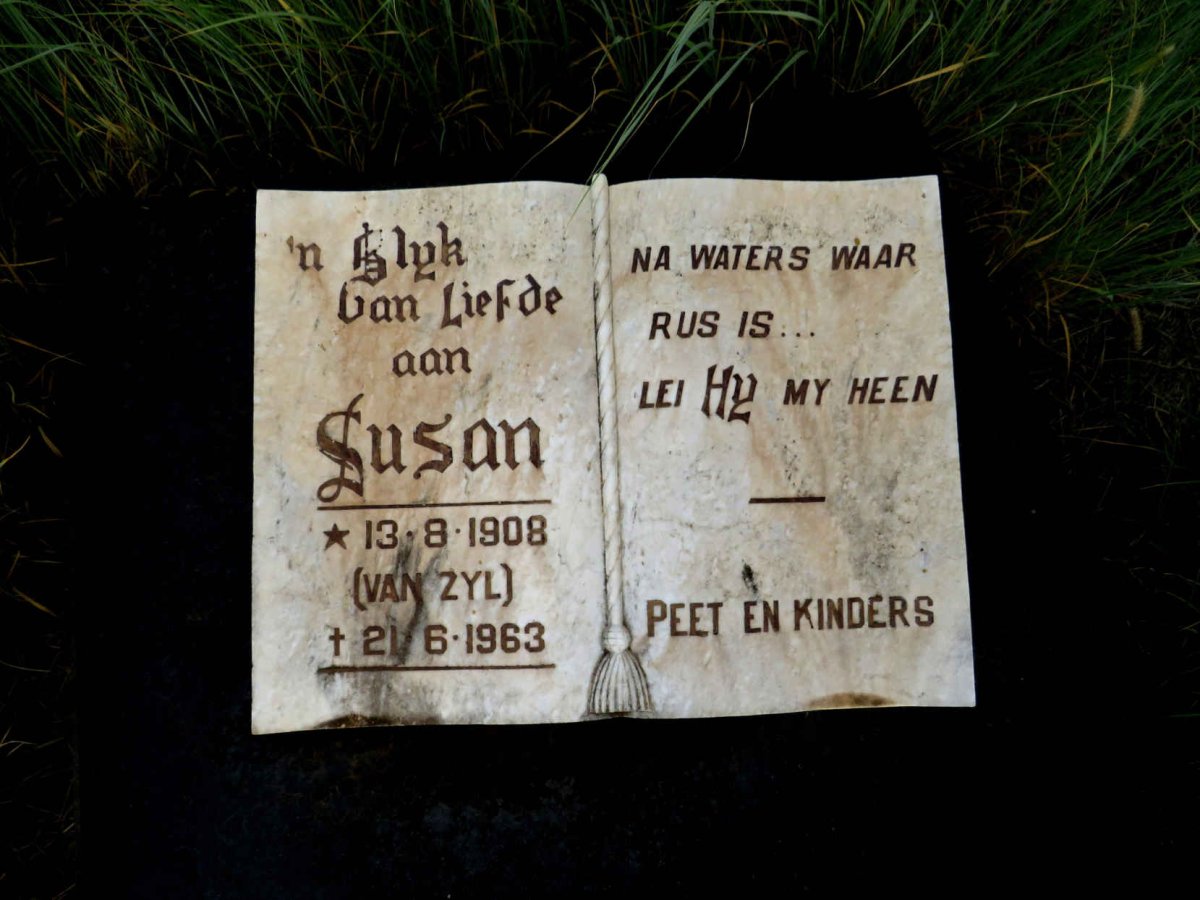 'n Blyk
van Liefde
aan
Susan
★ 13·8·1908
(VAN ZYL)
† 21·6·1963
NA WATERS WAAR
RUS IS...
LEI HY MY HEEN
PEET EN KINDERS